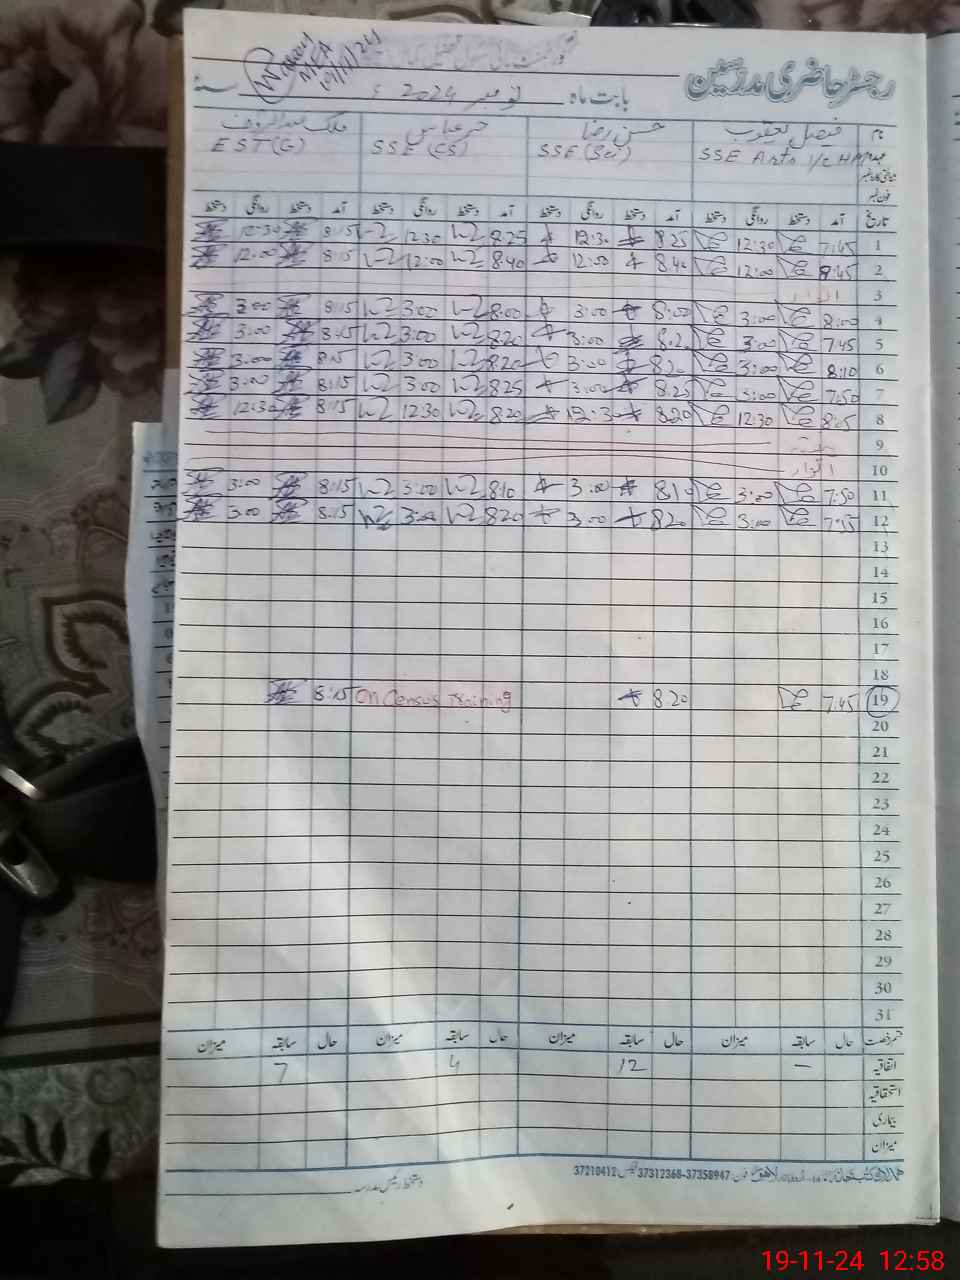 رجسٹر حاضری مدرسین
MEA 19/11/24
بابت ماہ نومبر 2024ء
نام فیصل یعقوب حسن رضا حر عباس ملک عبدالرؤف
عہدہ SSE Arts I/C HM SSE (Sci) SSE (CS) EST (G)
فون نمبر
تاریخ آمد دستخط روانگی دستخط آمد دستخط روانگی دستخط آمد دستخط روانگی دستخط آمد دستخط روانگی دستخط
1 7:45 12:30 8:25 12:30 8:25 12:30 8:15 12:30
2 8:45 12:00 8:40 12:00 8:40 12:00 8:15 12:00
3 اتوار
4 8:00 3:00 8:00 3:00 8:00 3:00 8:15 3:00
5 7:45 3:00 8:20 3:00 8:20 3:00 8:15 3:00
6 8:10 3:00 8:20 3:00 8:20 3:00 8:15 3:00
7 7:50 3:00 8:25 3:00 8:25 3:00 8:15 3:00
8 8:05 12:30 8:20 12:30 8:20 12:30 8:15 12:30
9
10 اتوار
11 7:50 3:00 8:10 3:00 8:10 3:00 8:15 3:00
12 7:55 3:00 8:20 3:00 8:20 3:00 8:15 3:00
13
14
15
16
17
18
19 7:45 8:20 On Census Training 8:15
20
21
22
23
24
25
26
27
28
29
30
31
قسم رخصت حال سابقہ میزان حال سابقہ میزان حال سابقہ میزان حال سابقہ میزان
اتفاقیہ – 12 4 7
استحقاقیہ
بیماری
میزان
فون 37358947-37312368 فیکس 37210412
دستخط رئیس مدرسہ
19-11-24 12:58